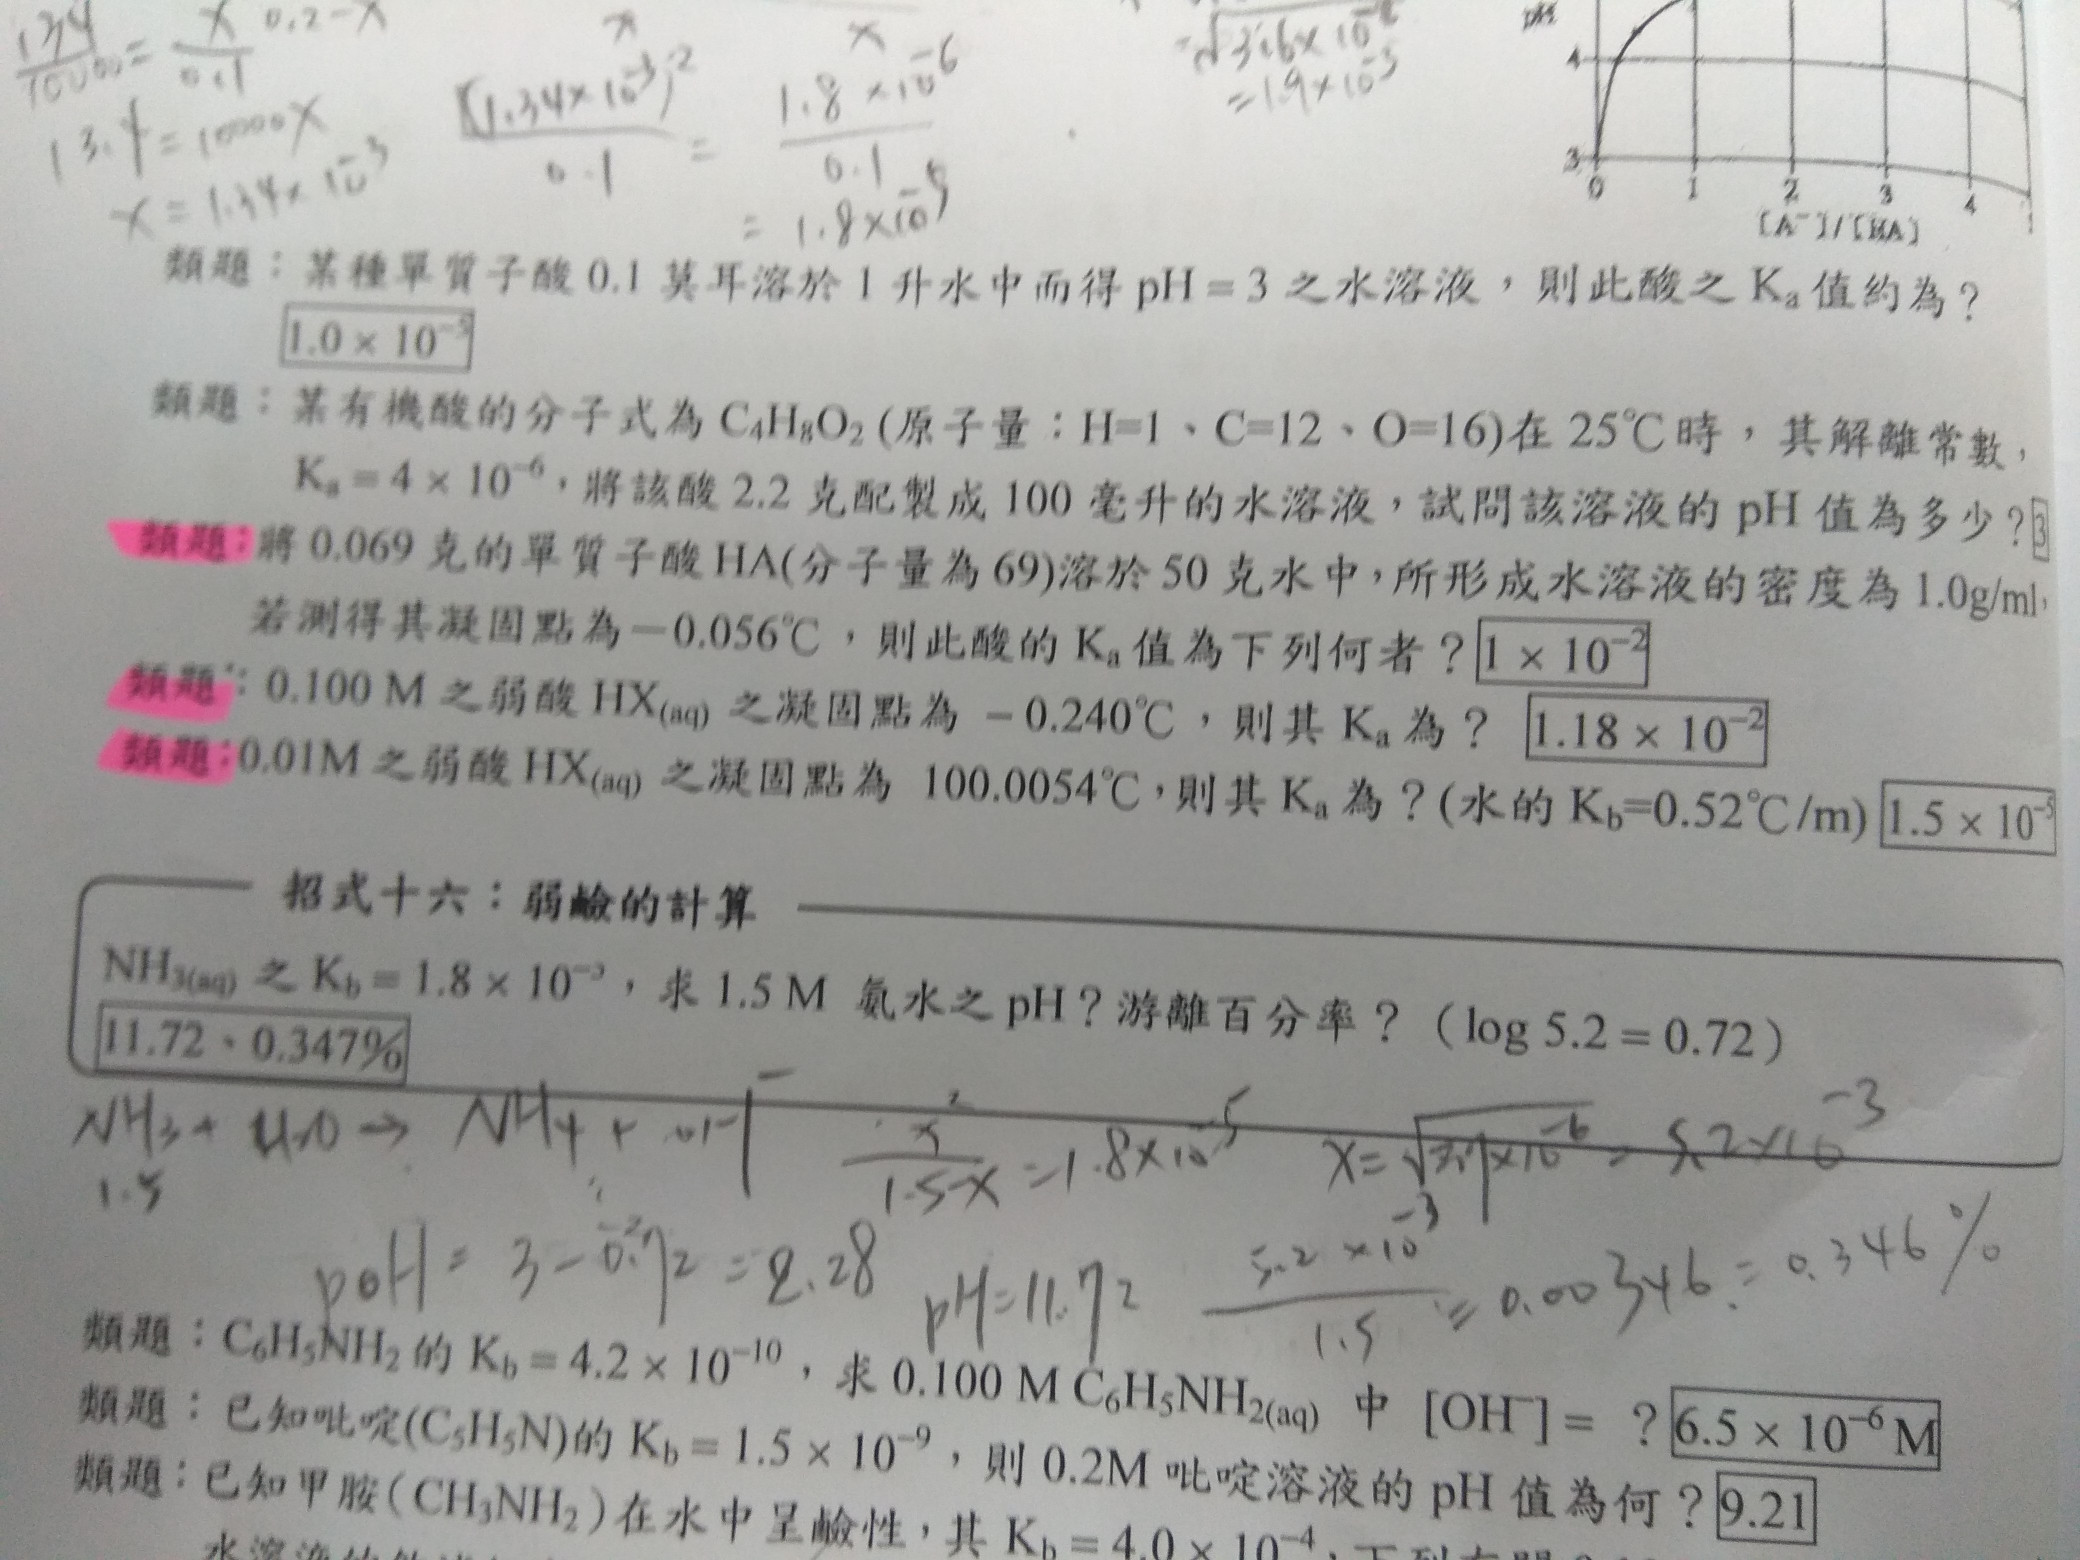 134/10000 = x/0.1 0.2-x
13.4 = 10000x
x = 1.34×10⁻³
(1.34×10⁻³)²/0.1 = 1.8×10⁻⁶/0.1
= 1.8×10⁻⁵
=√3.6×10⁻⁶
=1.9×10⁻³
pH
4
3
0 1 2 3 4
[A⁻]/[HA]
類題：某種單質子酸 0.1 莫耳溶於 1 升水中而得 pH = 3 之水溶液，則此酸之 Kₐ 值約為？
1.0 × 10⁻⁵
類題：某有機酸的分子式為 C₄H₈O₂ (原子量：H=1、C=12、O=16)在 25℃ 時，其解離常數，
Kₐ = 4 × 10⁻⁶，將該酸 2.2 克配製成 100 毫升的水溶液，試問該溶液的 pH 值為多少？3
類題：將 0.069 克的單質子酸 HA(分子量為 69)溶於 50 克水中，所形成水溶液的密度為 1.0g/ml，
若測得其凝固點為－0.056℃，則此酸的 Kₐ 值為下列何者？1 × 10⁻²
類題：0.100 M 之弱酸 HX(aq) 之凝固點為 －0.240℃，則其 Kₐ 為？ 1.18 × 10⁻²
類題：0.01M 之弱酸 HX(aq) 之凝固點為 100.0054℃，則其 Kₐ 為？(水的 K_b=0.52℃/m) 1.5 × 10⁻⁵
招式十六：弱鹼的計算
NH₃(aq) 之 K_b = 1.8 × 10⁻⁵，求 1.5 M 氨水之 pH？游離百分率？（log 5.2 = 0.72）
11.72、0.347%
NH₃ + H₂O → NH₄ + OH⁻ x²/1.5-x = 1.8×10⁻⁵ x = √27×10⁻⁶ = 5.2×10⁻³
1.5
pOH = 3 - 0.72 = 2.28 pH = 11.72 5.2×10⁻³/1.5 = 0.00346 = 0.346%
類題：C₆H₅NH₂ 的 K_b = 4.2 × 10⁻¹⁰，求 0.100 M C₆H₅NH₂(aq) 中 [OH⁻] = ？6.5 × 10⁻⁶ M
類題：已知吡啶(C₅H₅N)的 K_b = 1.5 × 10⁻⁹，則 0.2M 吡啶溶液的 pH 值為何？9.21
類題：已知甲胺（CH₃NH₂）在水中呈鹼性，其 K_b = 4.0 × 10⁻⁴，下列有關